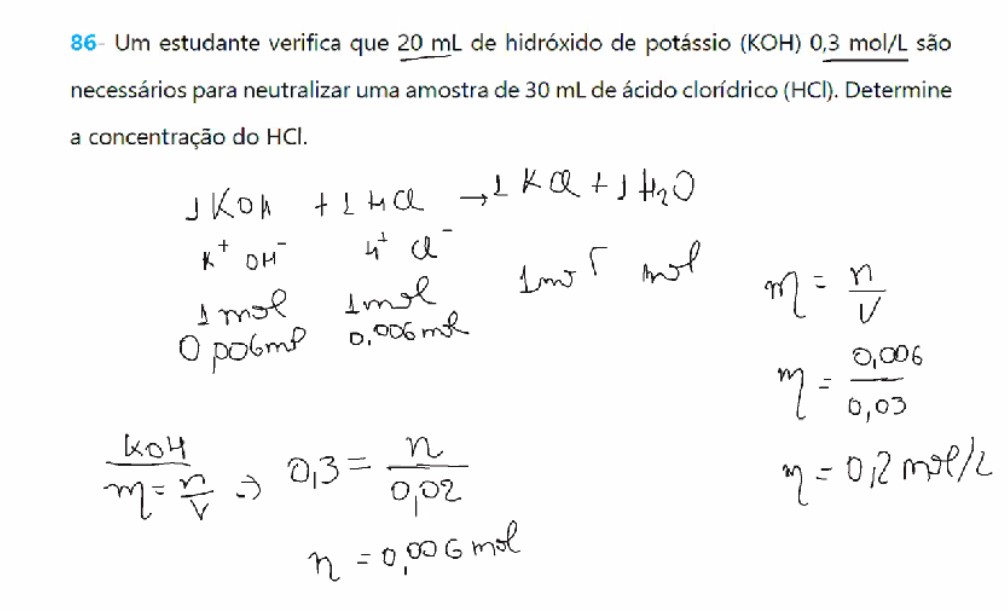 86- Um estudante verifica que 20 mL de hidróxido de potássio (KOH) 0,3 mol/L são
necessários para neutralizar uma amostra de 30 mL de ácido clorídrico (HCl). Determine
a concentração do HCl.
1 KOH + 1 HCl → 1 KCl + 1 H₂O
K⁺ OH⁻ H⁺ Cl⁻
1 mol 1 mol 1 mol mol
0,006 mol 0,006 mol
m = n/V
m = 0,006/0,03
m = 0,2 mol/L
KOH
m = n/V => 0,3 = n/0,02
n = 0,006 mol